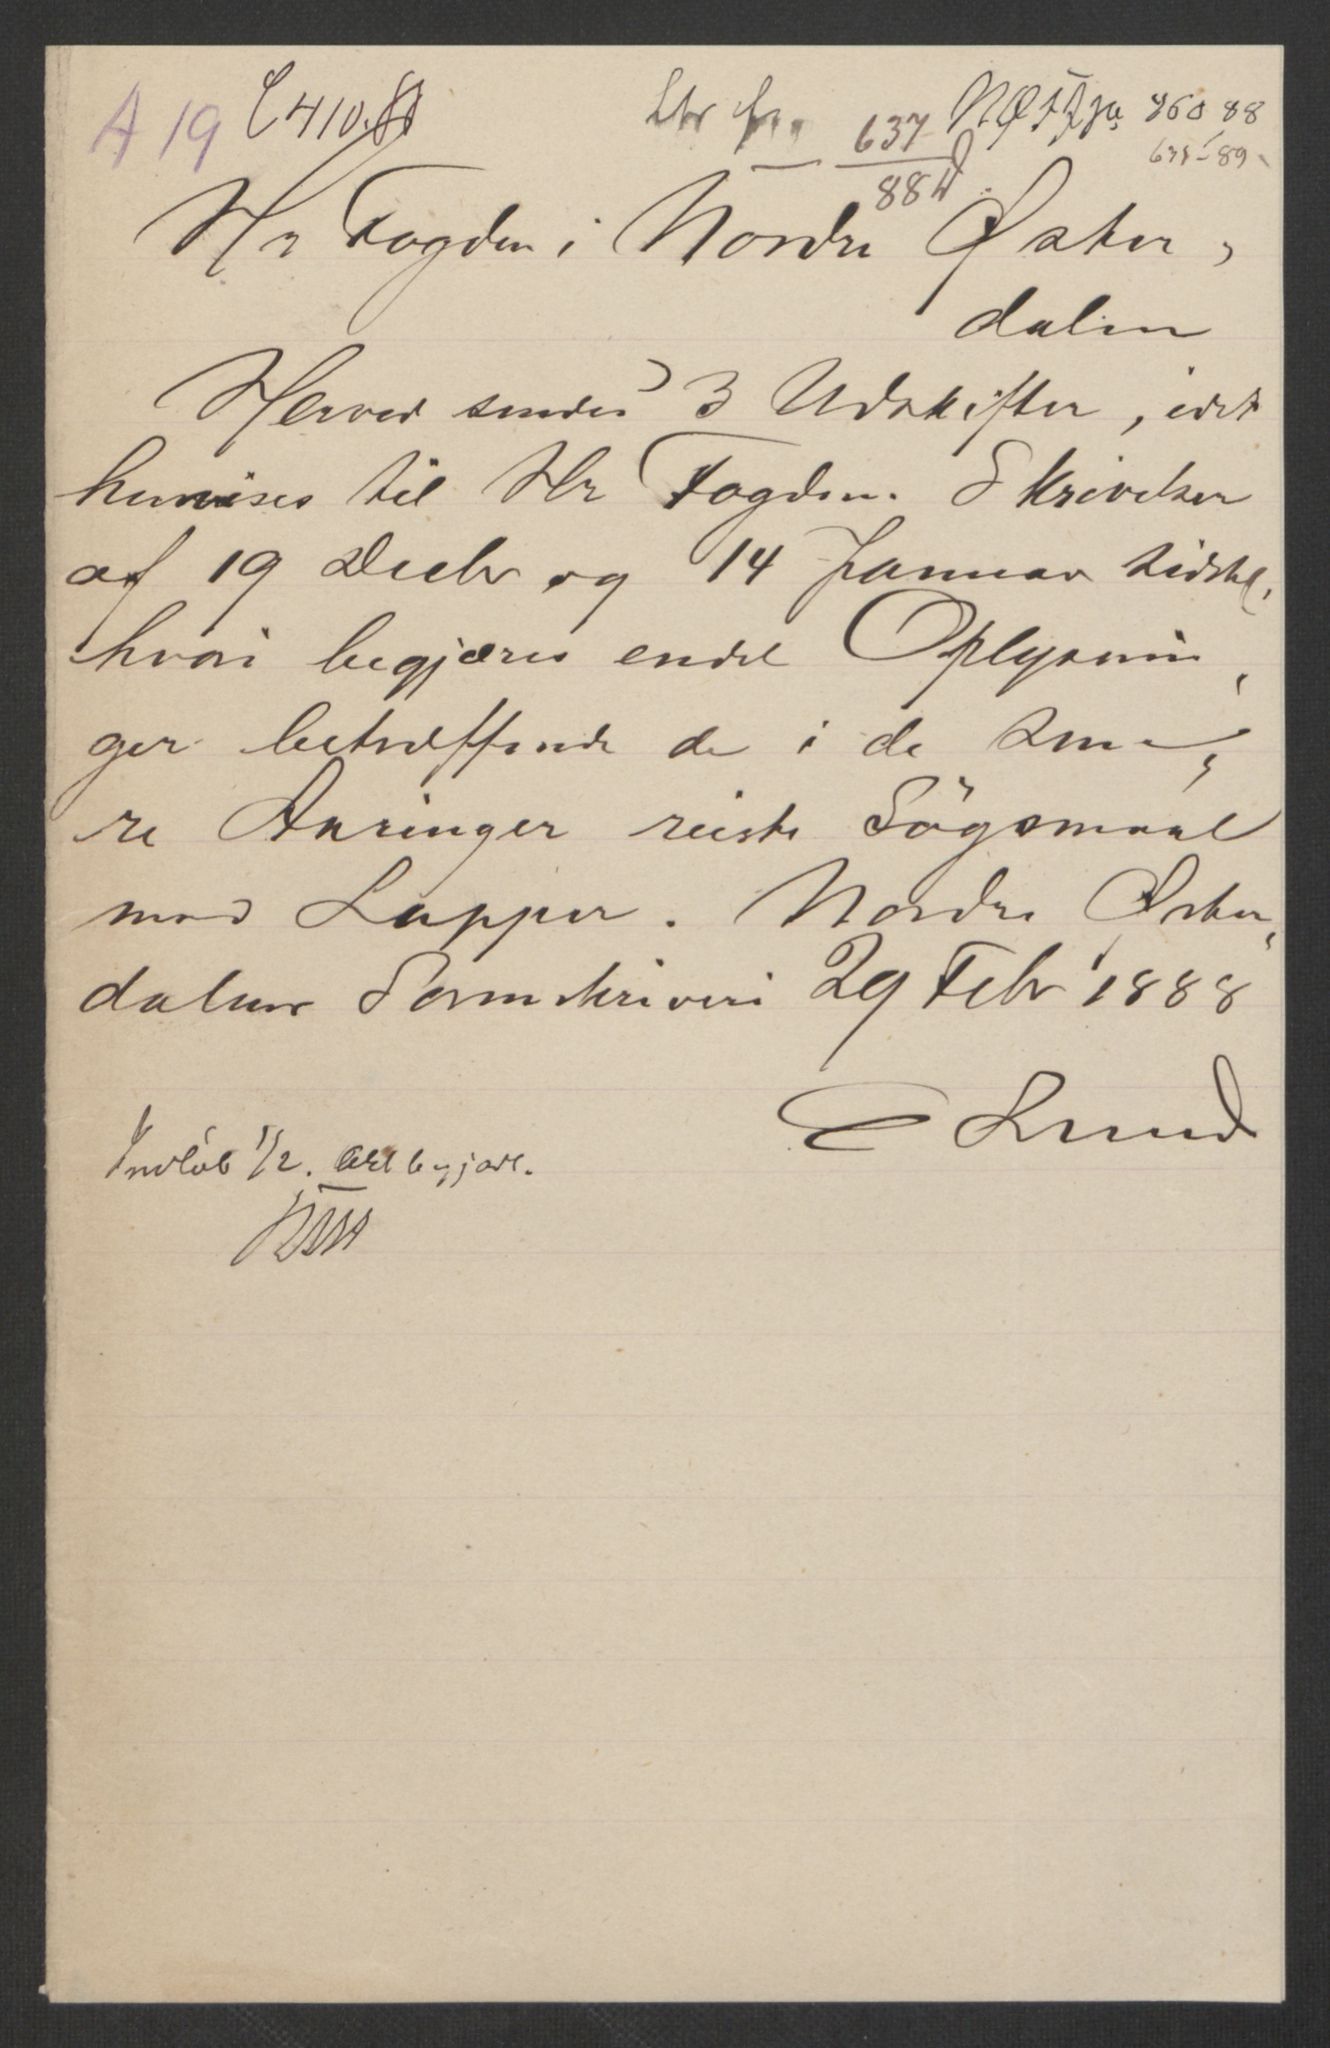 A 19 C 410.88
637 NØ 860 88
88 635-89
Hr Fogden i Nordre Øster,
dalen
Herved sendes 3 Udskifter, idet
henvises til Hr Fogdens Skrivelser
af 19 Decbr og 14 Januar sidstl.
hvori begjæres endel Oplysnin,
ger betræffende de i de sene,
re Aaringer reiste Søgsmaal
mod Lapper. Nordre Øster,
dalens Sorenskriveri 29 Febr 1888
E Lund
Indløb 1/2. begjært.